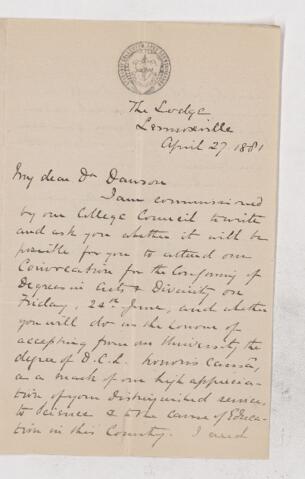 The Lodge
Lennoxville
April 27 1881
My dear Dr Dawson
I am commissioned
by our College Council to write
and ask you whether it will be
possible for you to attend our
Convocation for the Conferring of
Degrees in Arts & Divinity on
Friday, 24th June, and whether
you will do us the honour of
accepting from our University the
degree of D.C.L. honoris causâ,
as a mark of our high apprecia-
tion of your distinguished services
to Science & to the cause of Educa-
tion in this Country. I need